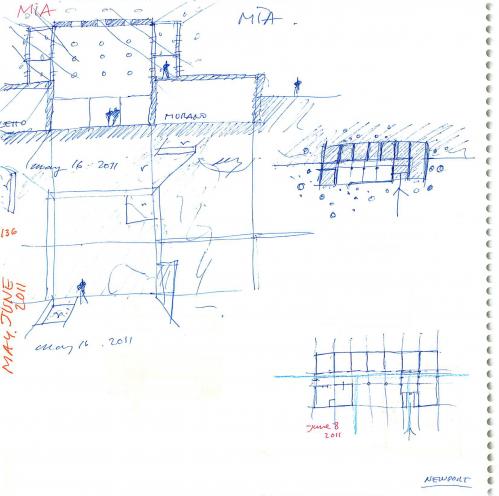 MiA
MiA.
MORANO
may 16 - 2011
136
MAY. JUNE
2011
may 16 . 2011
June 8
2011
NEWPORT